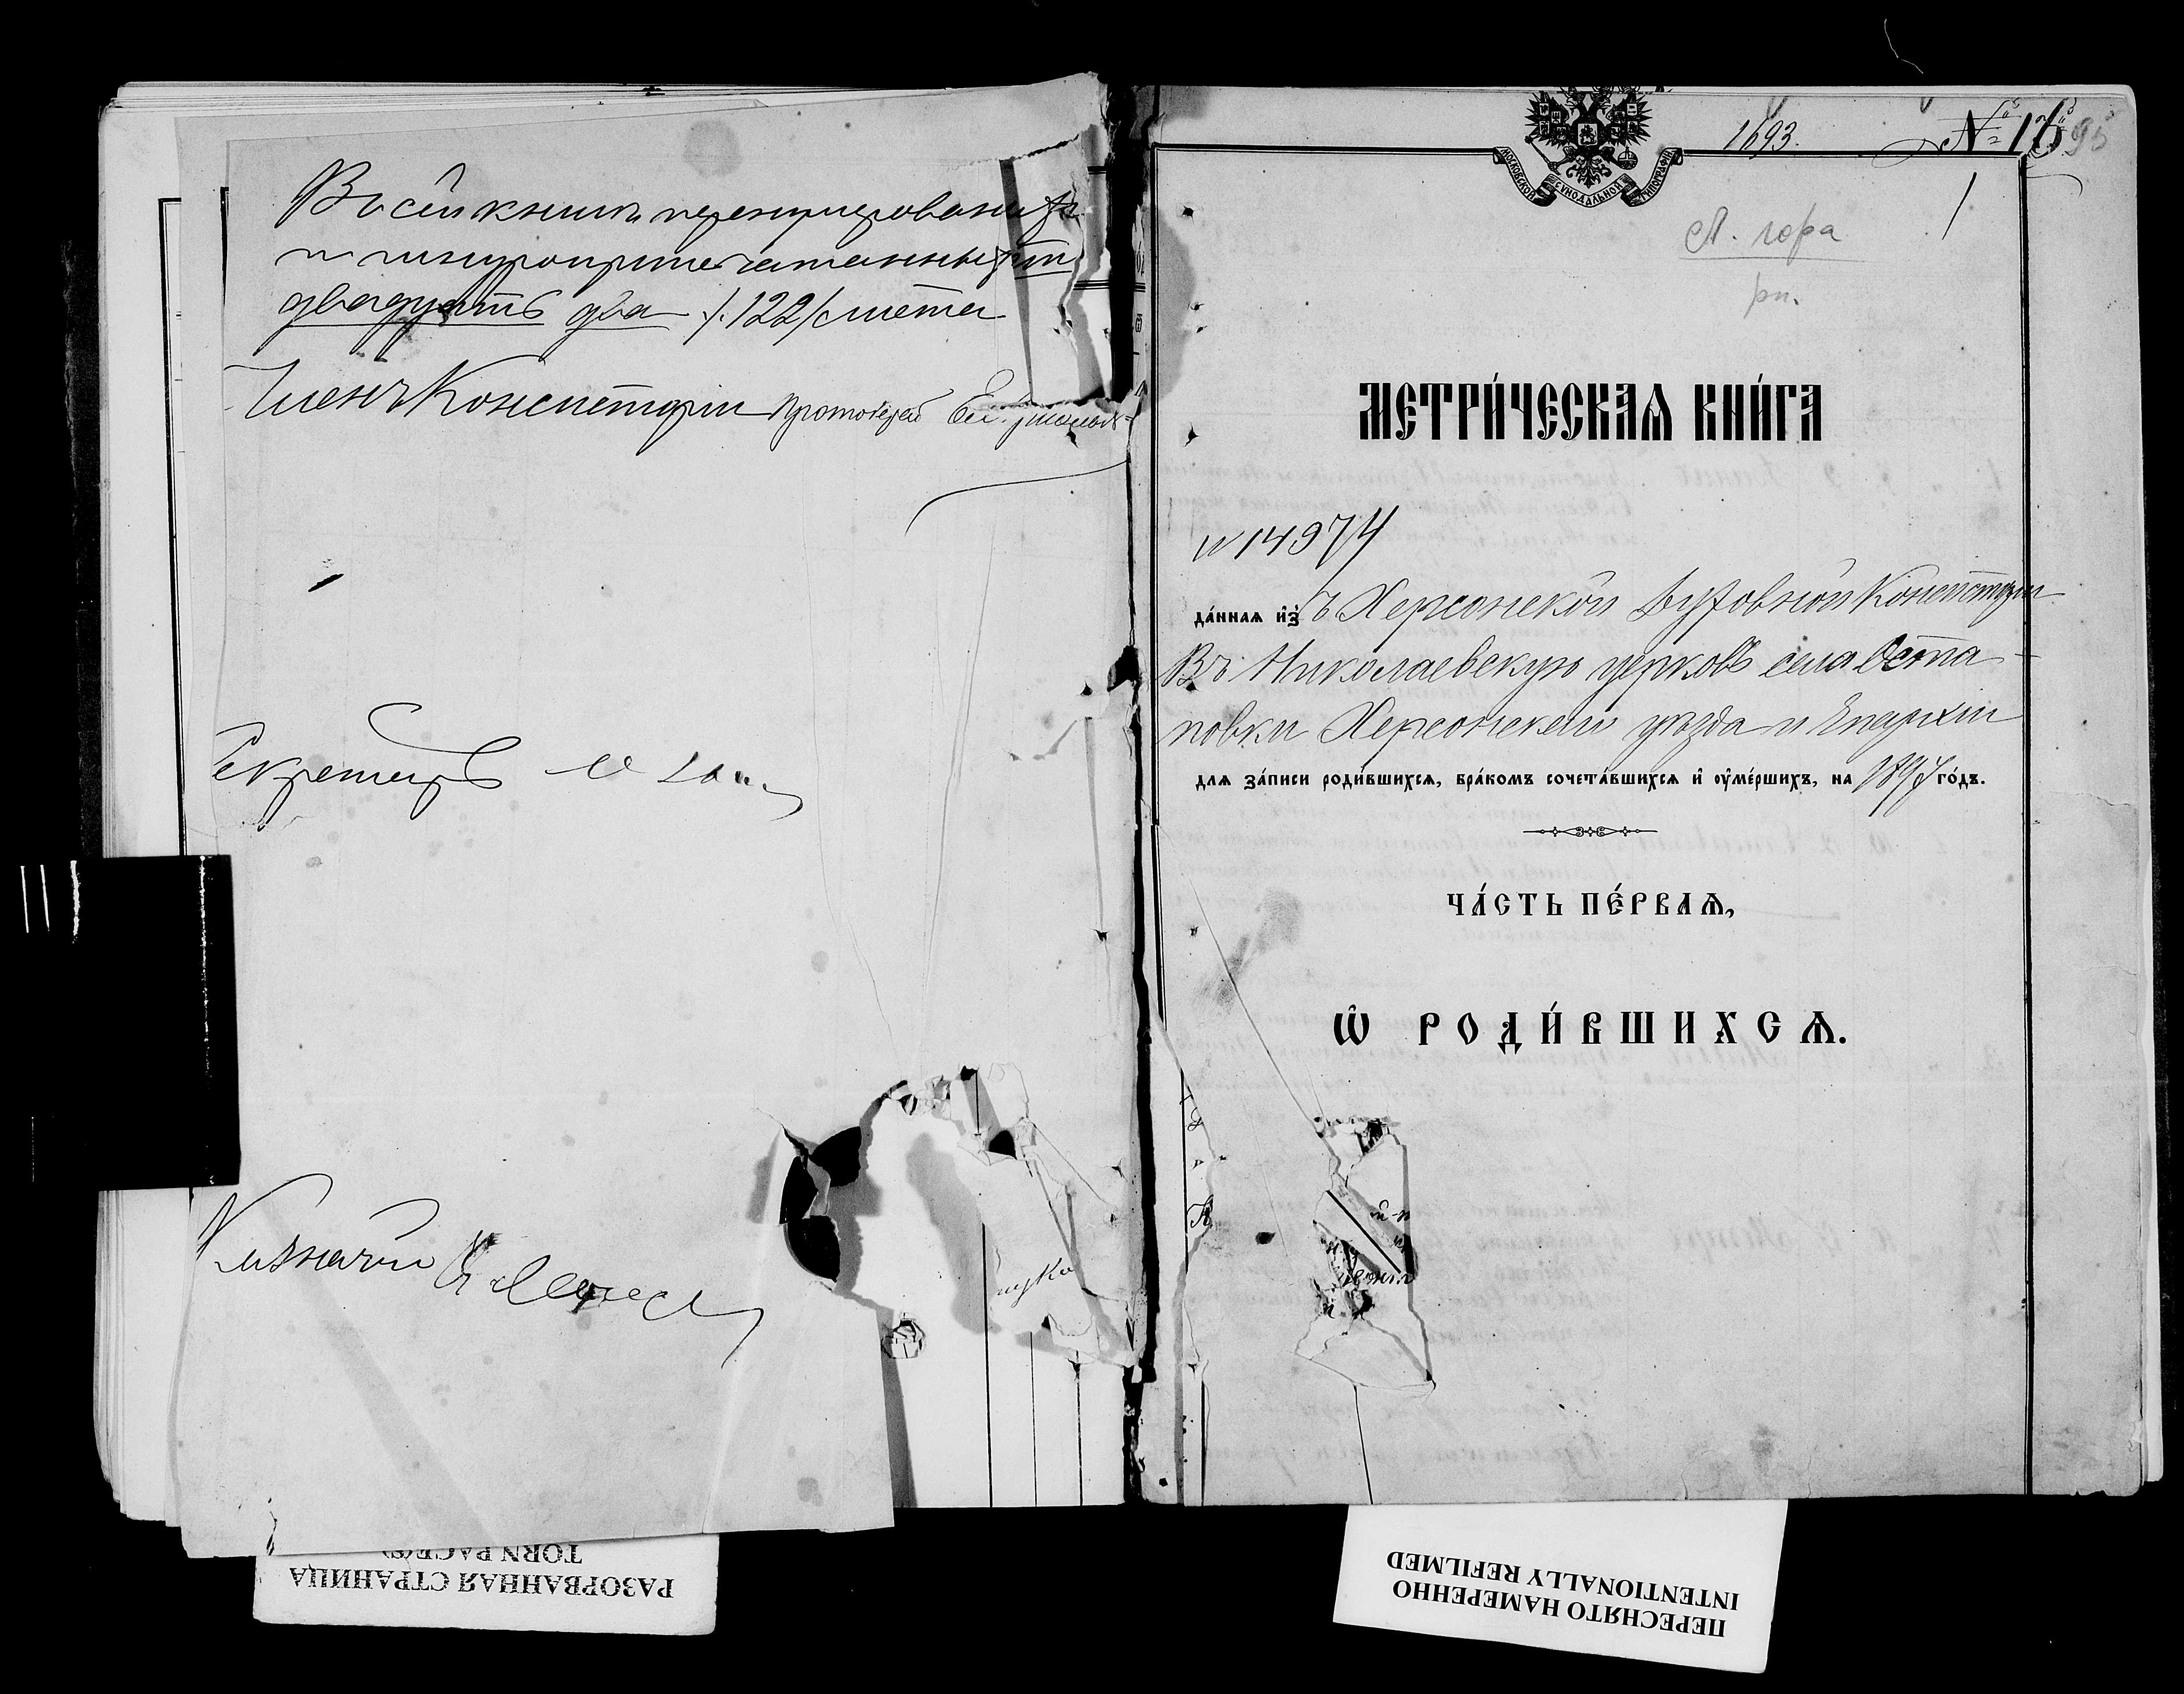 Въ сей книгѣ перенумерованныхъ
и шнуроприпечатанныхъ
двадцать два /122/ листа
Членъ Консисторіи Протоіерей
Секретарь
Казначей
МОСКОВСКОЙ СѴНОДАЛЬНОЙ ТИПОГРАФІИ
1693.
№ 16
95
1
А. гора
рп.
МЕТРИ́ЧЕСКАѦ КНИ́ГА
№ 14974
да́ннаѧ и҆зъ Херсонской Духовной Консисторіи
Въ Николаевскую церковь села Оста-
повки Херсонскаго уѣзда и Епархіи
для за́писи роди́вшихсѧ, бра́комъ сочета́вшихсѧ и҆ ᲂу҆ме́ршихъ, на 1897 го́дъ.
ЧА́СТЬ ПЕ́РВАѦ,
Ѽ РОДИ́ВШИХСѦ.
РАЗОРВАННАЯ СТРАНИЦА
TORN PAGE(S)
ПЕРЕСНЯТО НАМЕРЕННО
INTENTIONALLY REFILMED